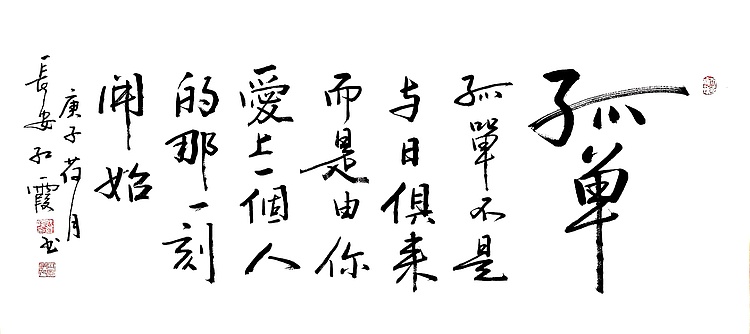 孤单
孤單不是
与日俱来
而是由你
愛上一個人
的那一刻
開始
庚子荷月
長安红霞书